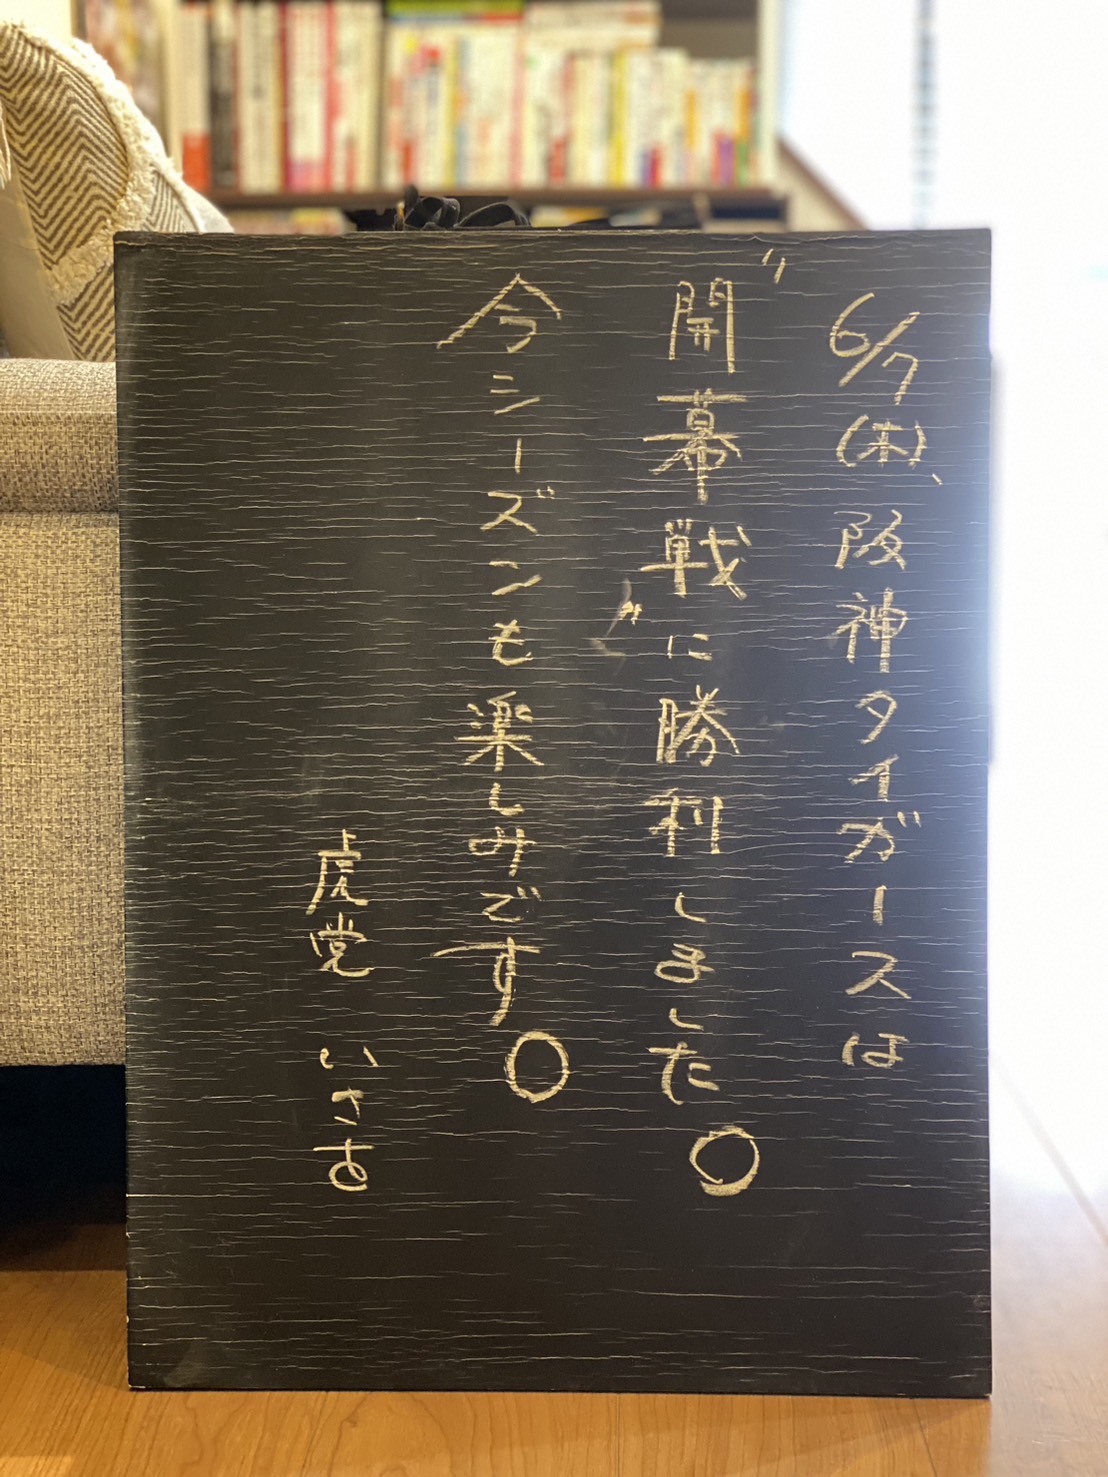 6/7(木)、阪神タイガースは
"開幕戦"に勝利しました。
今シーズンも楽しみです。
虎党 いさお